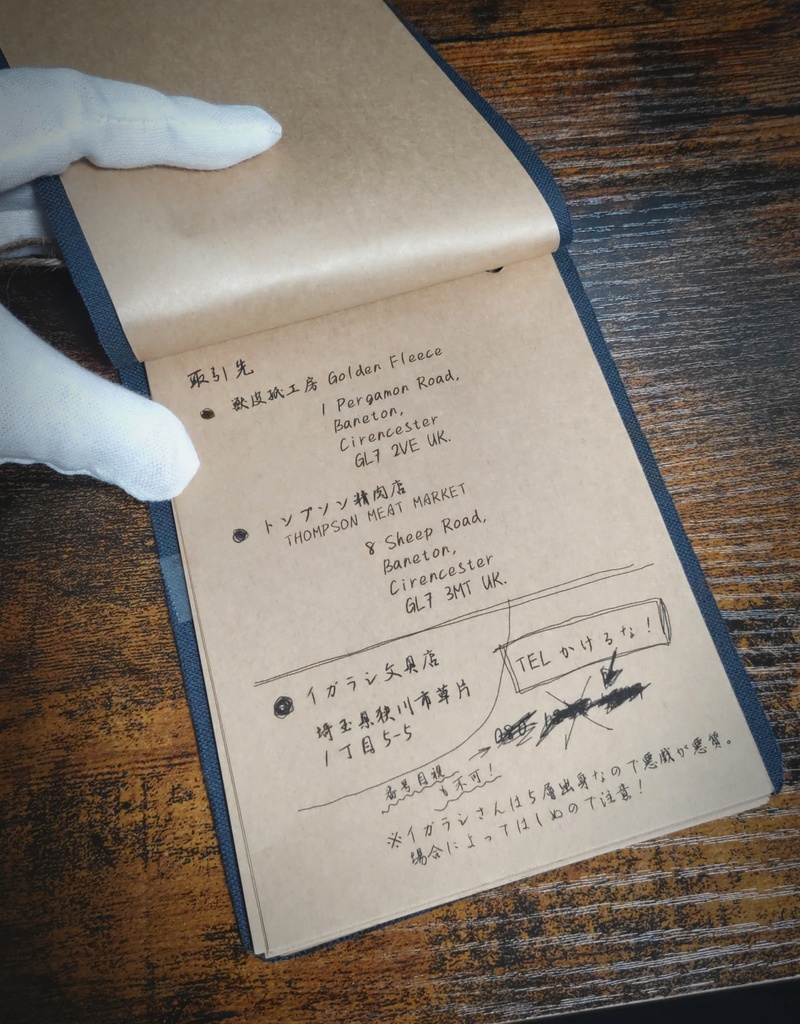 取引先
● 獣皮紙工房 Golden Fleece
1 Pergamon Road,
Baneton,
Cirencester
GL7 2VE UK.
● トンプソン精肉店
THOMPSON MEAT MARKET
8 Sheep Road,
Baneton,
Cirencester
GL7 3MT UK.
● イガラシ文具店
埼玉県狭川市草片
1丁目5-5
TELかけるな!
080
番号目視
も不可!
※イガラシさんは5層出身なので悪戯が悪質。
場合によってはしぬので注意!